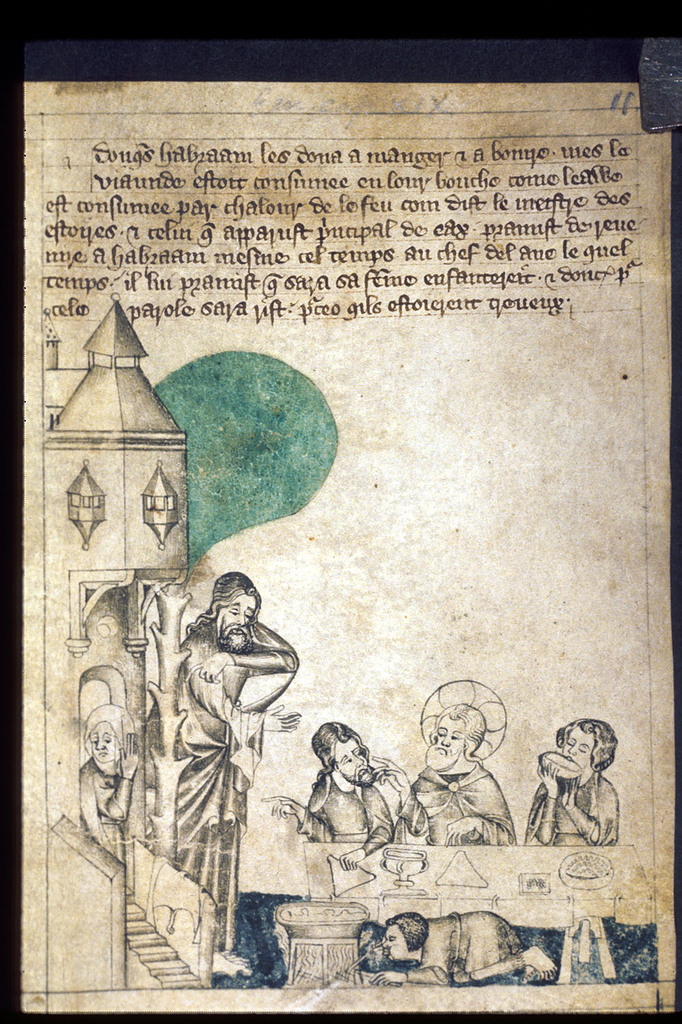 donqs habraam les dona a manger ⁊ a boiure · mes le
viaunde estoit consumee en lour bouche come leawe
est consumee par chalour de le feu com dist le mestre des
estoires · ⁊ celui q̄ apparust p̄ncipal de eax · pramist de reue
nire a habraam mesme cel temps au chef del ane le quel
temps · il lui pramist q̄ sara sa fēme enfantereit · ⁊ donc pᵃ
cele parole sara rist · pᵃceo qils estoierent